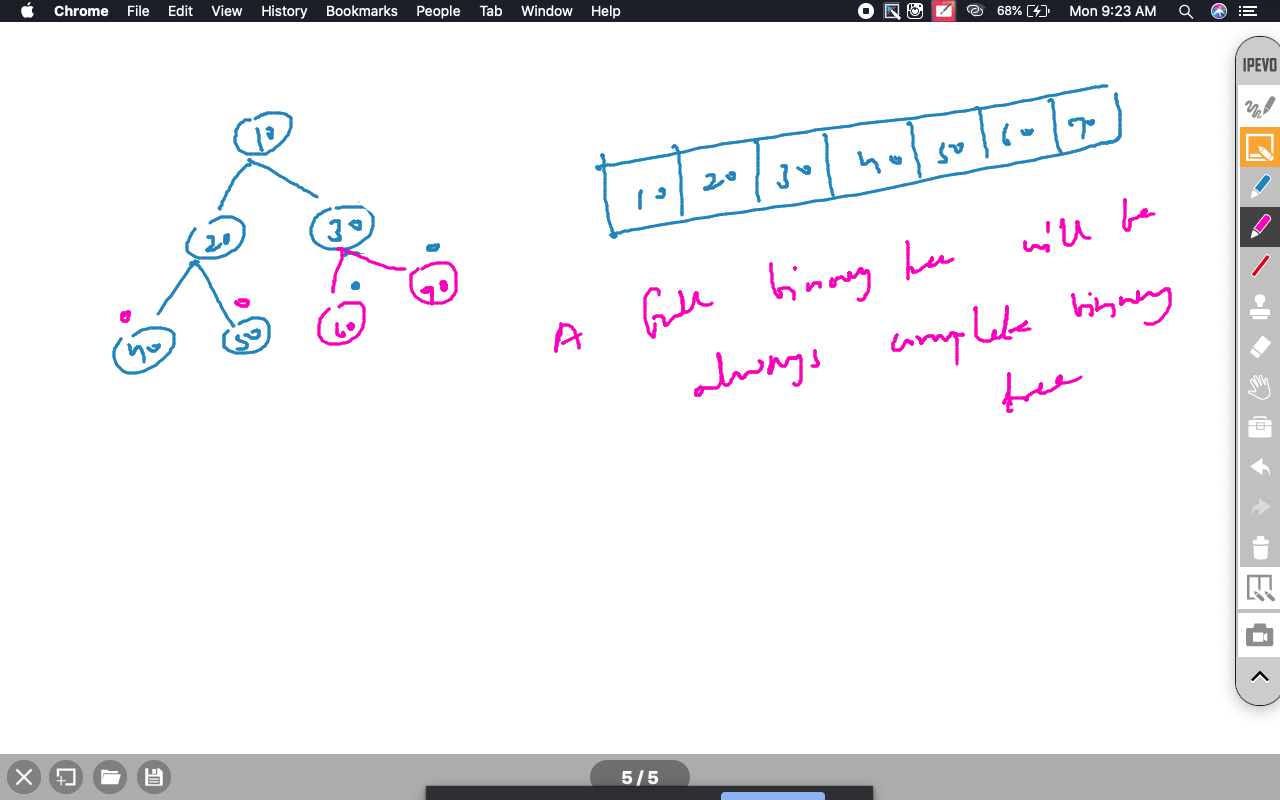 Chrome File Edit View History Bookmarks People Tab Window Help 68% Mon 9:23 AM
IPEVO
10
20 30
40 50 60 90
10 20 30 40 50 60 70
A full binary tree will be
always complete binary
tree
5 / 5